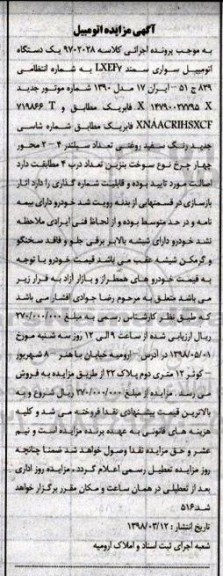 آگهی مزایده اتومبیل
به موجب پرونده اجرائی کلاسه ۹۷۰۲۰۲۸ یک دستگاه
اتومبیل سواری سمند LXEF۷ به شماره انتظامی
۸۳۹ ج ۵۱ – ایران ۱۷ مدل ۱۳۹۰ شماره موتور جدید
X ۱۴۷۹۰۰۲۷۷۹۵ X فابریک مطابق و T ۷۱۹۸۶۶
XNAACRIHSXCF فابریک مطابق شماره شاسی
جدید رنگ سفید روغنی تعداد سیلندر ۴ – ۲ محور
چهار چرخ نوع سوخت بنزین تعداد درب ۴ مطابقت دارد
اصالت مورد تایید بوده و قابلیت شماره گذاری را دارد آثار
بازسازی در قسمتهایی از بدنه رویت شد خودرو دارای بیمه
نامه و در حد متوسط بوده و از لحاظ فنی ایرادی ملاحظه
نشد خودرو دارای شیشه بالابر برقی جلو و فاقد سخنگو
و گرمکن شیشه عقب می باشد قیمت خودرو با توجه
به قیمت خودرو های همطراز و بازار آزاد به قرار زیر
می باشد متعلق به مرحوم رضا جوادی افشار می باشد
که طبق نظر کارشناس رسمی به مبلغ ۲۷۰/۰۰۰/۰۰۰
ریال ارزیابی شده از ساعت ۹ الی ۱۲ روز سه شنبه مورخ
۱۳۹۸/۰۵/۰۱ در آدرس – ارومیه خیابان باهنر – ۸ شهریور
– کوثر ۱۲ متری دوم پلاک ۲۲ از طریق مزایده به فروش
می رسد . مزایده از مبلغ ۲۷۰/۰۰۰/۰۰۰ ریال شروع و به
بالاترین قیمت پیشنهادی نقدا فروخته می شد و کلیه
هزینه های قانونی به عهده برنده مزایده است و نیم
عشر و حق مزایده نقدا وصول خواهد شد ضمنا چنانچه
روز مزایده تعطیل رسمی اعلام گردد ، مزایده روز اداری
بعد از تعطیلی در همان ساعت و مکان مقرر برگزار خواهد
شد ۵۱۶
تاریخ انتشار : ۱۳۹۸/۰۳/۱۲
شعبه اجرای ثبت اسناد و املاک ارومیه